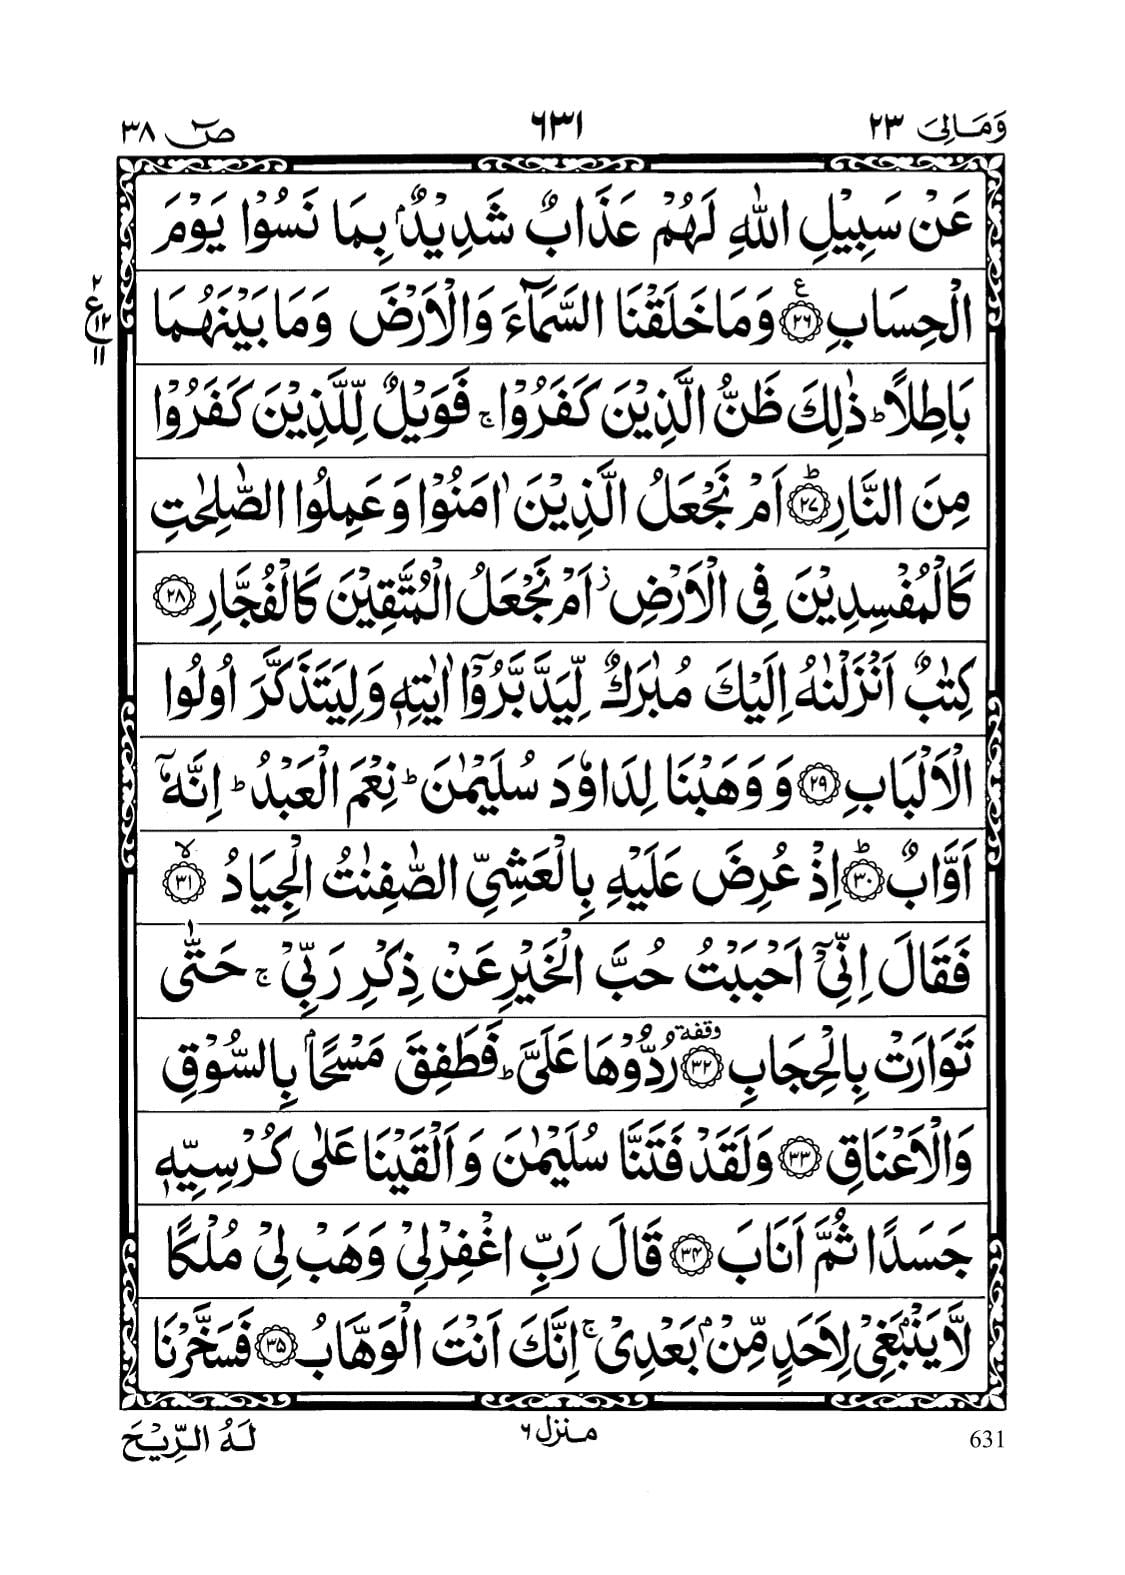 وَمَالِیَ ٢٣
٦٣١
صٓ ٣٨
عَنْ سَبِیْلِ اللّٰهِ لَهُمْ عَذَابٌ شَدِیْدٌۢ بِمَا نَسُوْا یَوْمَ
الْحِسَابِ ﴿٢٦﴾ ع وَمَا خَلَقْنَا السَّمَآءَ وَالْاَرْضَ وَمَا بَیْنَهُمَا
٢ ع ١٢ ١١
بَاطِلًا ؕ ذٰلِكَ ظَنُّ الَّذِیْنَ كَفَرُوْا ۚ فَوَیْلٌ لِّلَّذِیْنَ كَفَرُوْا
مِنَ النَّارِ ﴿٢٧﴾ؕ اَمْ نَجْعَلُ الَّذِیْنَ اٰمَنُوْا وَعَمِلُوا الصّٰلِحٰتِ
كَالْمُفْسِدِیْنَ فِی الْاَرْضِ ؗ اَمْ نَجْعَلُ الْمُتَّقِیْنَ كَالْفُجَّارِ ﴿٢٨﴾
كِتٰبٌ اَنْزَلْنٰهُ اِلَیْكَ مُبٰرَكٌ لِّیَدَّبَّرُوْۤا اٰیٰتِهٖ وَلِیَتَذَكَّرَ اُولُوا
الْاَلْبَابِ ﴿٢٩﴾ وَوَهَبْنَا لِدَاوٗدَ سُلَیْمٰنَ ؕ نِعْمَ الْعَبْدُ ؕ اِنَّهٗۤ
اَوَّابٌ ﴿٣٠﴾ؕ اِذْ عُرِضَ عَلَیْهِ بِالْعَشِیِّ الصّٰفِنٰتُ الْجِیَادُ ﴿٣١﴾ۙ
فَقَالَ اِنِّیْۤ اَحْبَبْتُ حُبَّ الْخَیْرِ عَنْ ذِكْرِ رَبِّیْ ۚ حَتّٰی
تَوَارَتْ بِالْحِجَابِ ﴿٣٢﴾ وقفة رُدُّوْهَا عَلَیَّ ؕ فَطَفِقَ مَسْحًۢا بِالسُّوْقِ
وَالْاَعْنَاقِ ﴿٣٣﴾ وَلَقَدْ فَتَنَّا سُلَیْمٰنَ وَاَلْقَیْنَا عَلٰی كُرْسِیِّهٖ
جَسَدًا ثُمَّ اَنَابَ ﴿٣٤﴾ قَالَ رَبِّ اغْفِرْلِیْ وَهَبْ لِیْ مُلْكًا
لَّا یَنْۢبَغِیْ لِاَحَدٍ مِّنْۢ بَعْدِیْ ۚ اِنَّكَ اَنْتَ الْوَهَّابُ ﴿٣٥﴾ فَسَخَّرْنَا
631
منزل ٦
لَهُ الرِّیْحَ